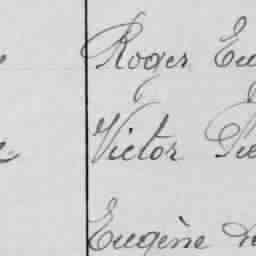 Roger Eu
Victor Pie
Eugène